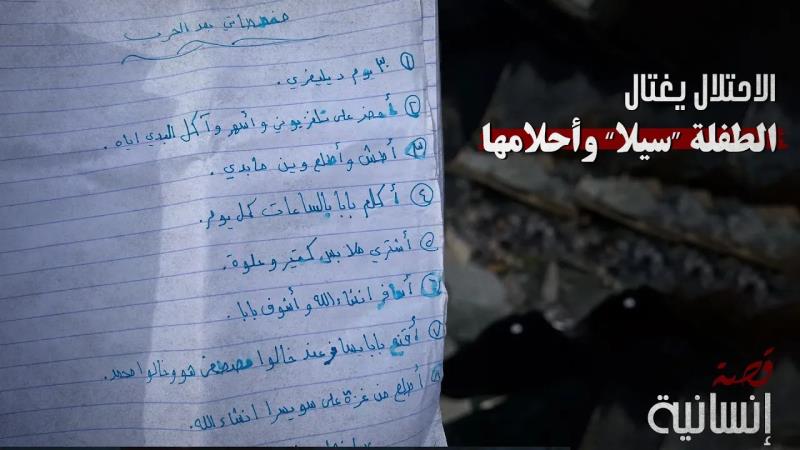 مخططاتي بعد الحرب
① ٣٠ يوم ديليفري .
② أحضر على تلفزيوني وأسهر وآكل البدي اياه .
③ أطش وأطلع وين مابدي .
④ أكلم بابا بالساعات كل يوم .
⑤ أشتري ملابس كتير وحلوة .
⑥ أسافر انشاءالله وأشوف بابا .
⑦ أقنع بابا يسافر عند خالوا مصطفى هو وخالوا محمد .
⑧ أطلع من غزة على سويسرا انشاءالله .
الاحتلال يغتال
الطفلة "سيلا" وأحلامها
قصة
إنسانية